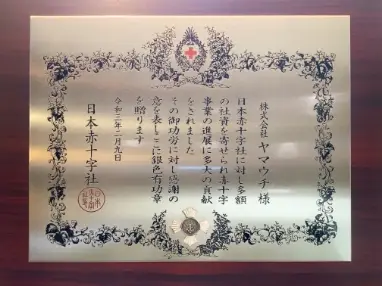 株式会社ヤマウチ様
日本赤十字社に対し多額
の社資を寄せられ赤十字
事業の進展に多大の貢献
をされました
その御功労に対し感謝の
意を表しここに銀色有功章
を贈ります
令和三年二月九日
日本赤十字社